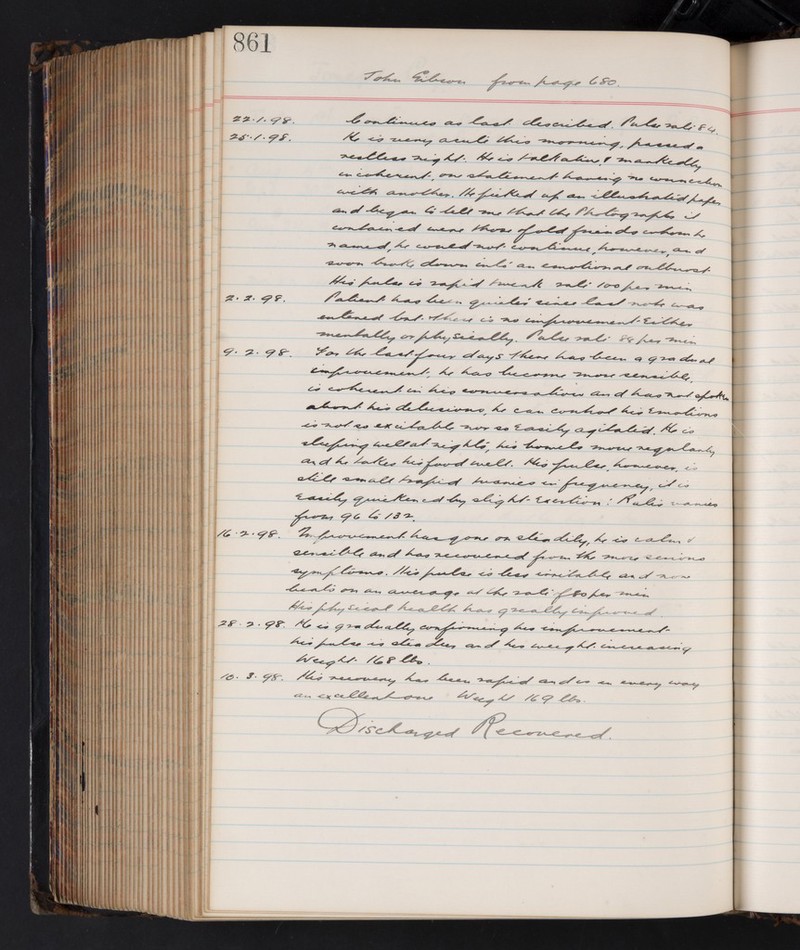 861
John Gibson from page 680.
22.1.98. Continues as last described. Pulse rate 84.
25.1.98. He is very acute this morning, passed a
restless night. He is talkative & markedly
incoherent, one statement having no connection
with another. He picked up an illustrated paper
and began to tell me that the Photographs it
contained were those of old friends whom he
named, he could not continue, however, and
soon broke down into an emotional outburst.
His pulse is rapid & weak rate 100 per min
2.2.98. Patient has been quieter since last note was
entered but there is no improvement Either
mentally or physically. Pulse rate 88 per min
9.2.98. For the last four days there has been a gradual
improvement, he has become more sensible,
is coherent in his conversation and has not spoken
about his delusions, he can control his Emotions
is not so excitable nor so Easily agitated. He is
sleeping well at nights, his bowels move regularly
and he takes his food well. His pulse, however, is
still small & rapid & varies in frequency, it is
Easily quickened by slight Exertion: Ratio varies
from 96 to 132.
16.2.98. Improvement has gone on steadily, he is calm &
sensible and has recovered from the more serious
symptoms. His pulse is less irritable and now
beats on an average at the rate of 80 per min
His physical health has greatly improved.
28.2.98. He is gradually confirming his improvement.
his pulse is steadier and his weight increasing
Weight 168 lbs.
10.3.98. His recovery has been rapid and is in every way
an excellent one Weight 169 lbs.
Discharged Recovered.